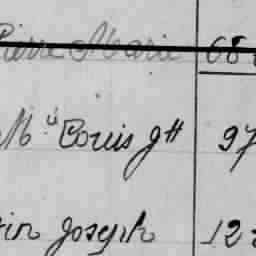 Pierre Marie 68
M" Louis gH 97
Joseph 12